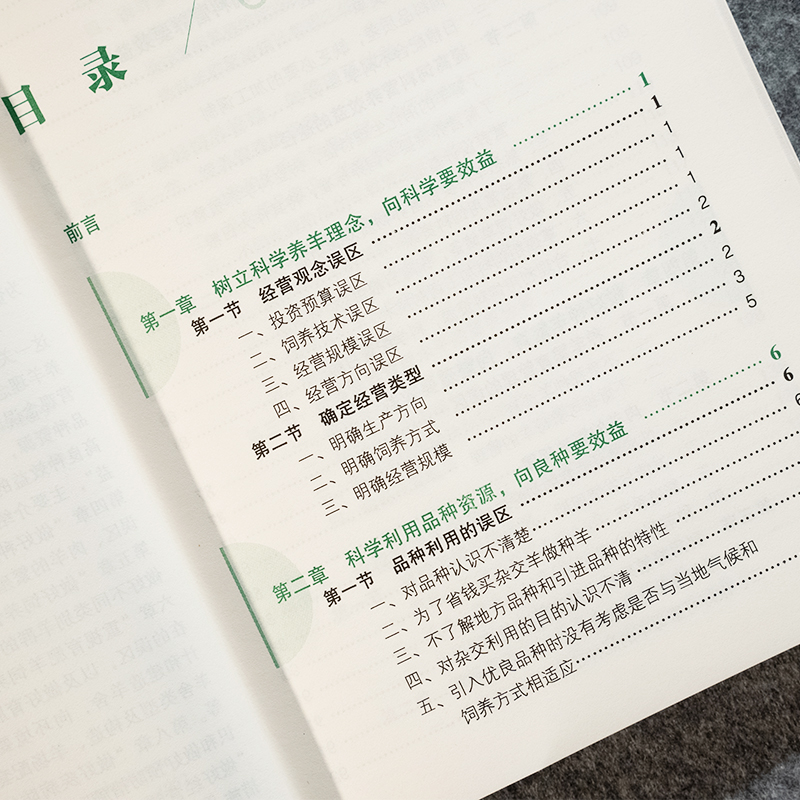 目 录
前言
第一章 树立科学养羊理念，向科学要效益 1
第一节 经营观念误区 1
一、投资预算误区 1
二、饲养技术误区 1
三、经营规模误区 1
四、经营方向误区 2
第二节 确定经营类型 2
一、明确生产方向 2
二、明确饲养方式 3
三、明确经营规模 5
第二章 科学利用品种资源，向良种要效益 6
第一节 品种利用的误区 6
一、对品种认识不清楚 6
二、为了省钱买杂交羊做种羊
三、不了解地方品种和引进品种的特性
四、对杂交利用的目的认识不清
五、引入优良品种时没有考虑是否与当地气候和
饲养方式相适应